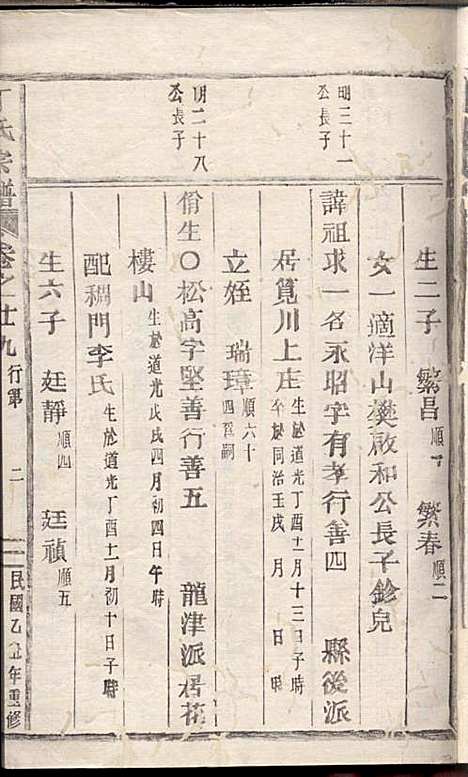 明三十一
公長子
明二十八
公長子
生二子 繁昌順一 繁春順二
女一適洋山樊啟和公長子鈐兒
諱祖求一名永昭字有孝行善四 縣後派
居筧川上庄生於道光丁酉十一月十三日子時
卒於同治壬戌 月 日 時
立姪 瑞璋順六十
四爲嗣
佾生〇松高字堅善行善五 龍津派居花
樓山生於道光戊戌四月初四日午時
配稠門李氏生於道光丁酉十二月初十日子時
生六子 廷靜順四 廷禎順五
丁氏宗譜 卷之廿九 行第 二 民國乙丑年重修